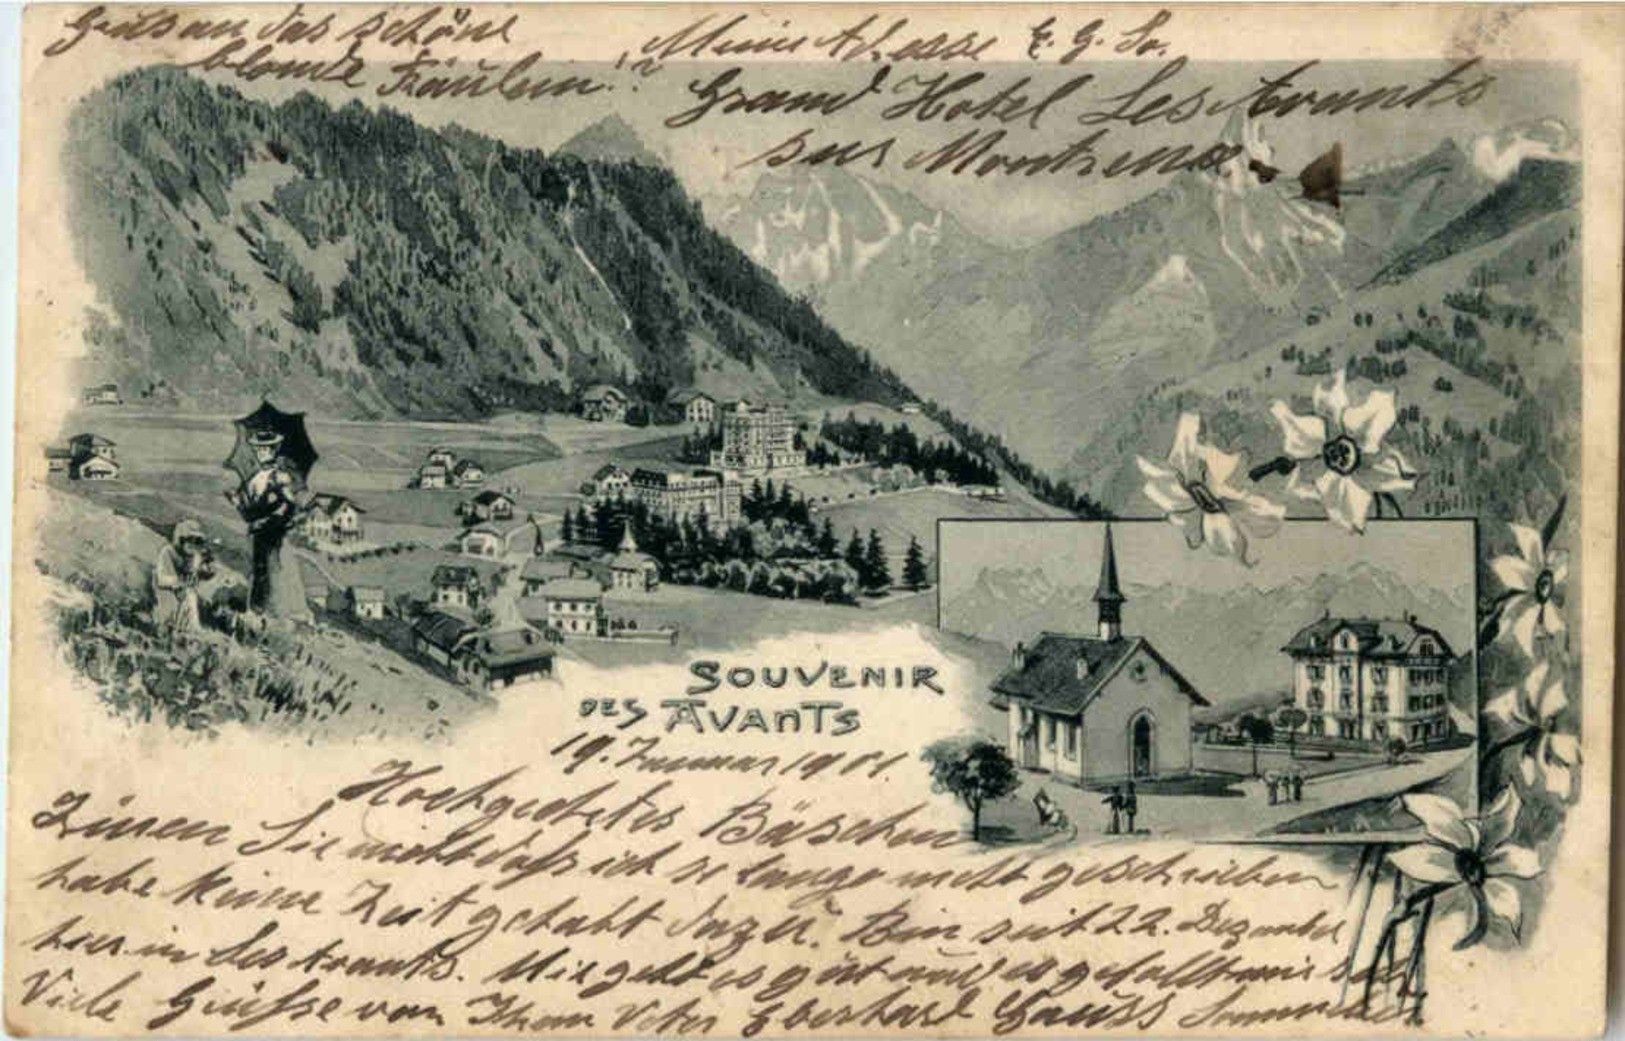 Gruss an das schöne
blonde Fräulein!?
Meine Adresse E. G. So.
Grand Hotel Les Avants
sur Montreux.
SOUVENIR
DES AVANTS
19. Januar 1901.
Hochgeehrtes Bäschen
Zürnen Sie nicht daß ich so lange nicht geschrieben
habe keine Zeit gehabt dazu. Bin seit 22. Dezember
hier in Les Avants. Mir geht es gut und es gefällt mir
Viele Grüße von Ihrem Vetter Eberhard Gauss